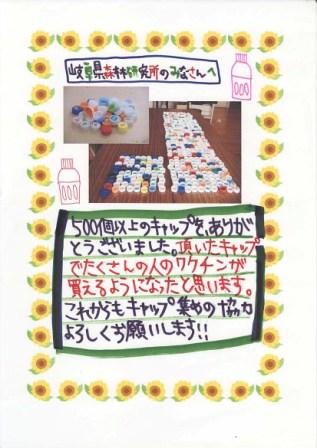 岐阜県森林研究所のみなさんへ
500個以上のキャップを、ありが
とうございました。頂いたキャップ
でたくさんの人のワクチンが
買えるようになったと思います。
これからもキャップ集めの協力
よろしくお願いします!!